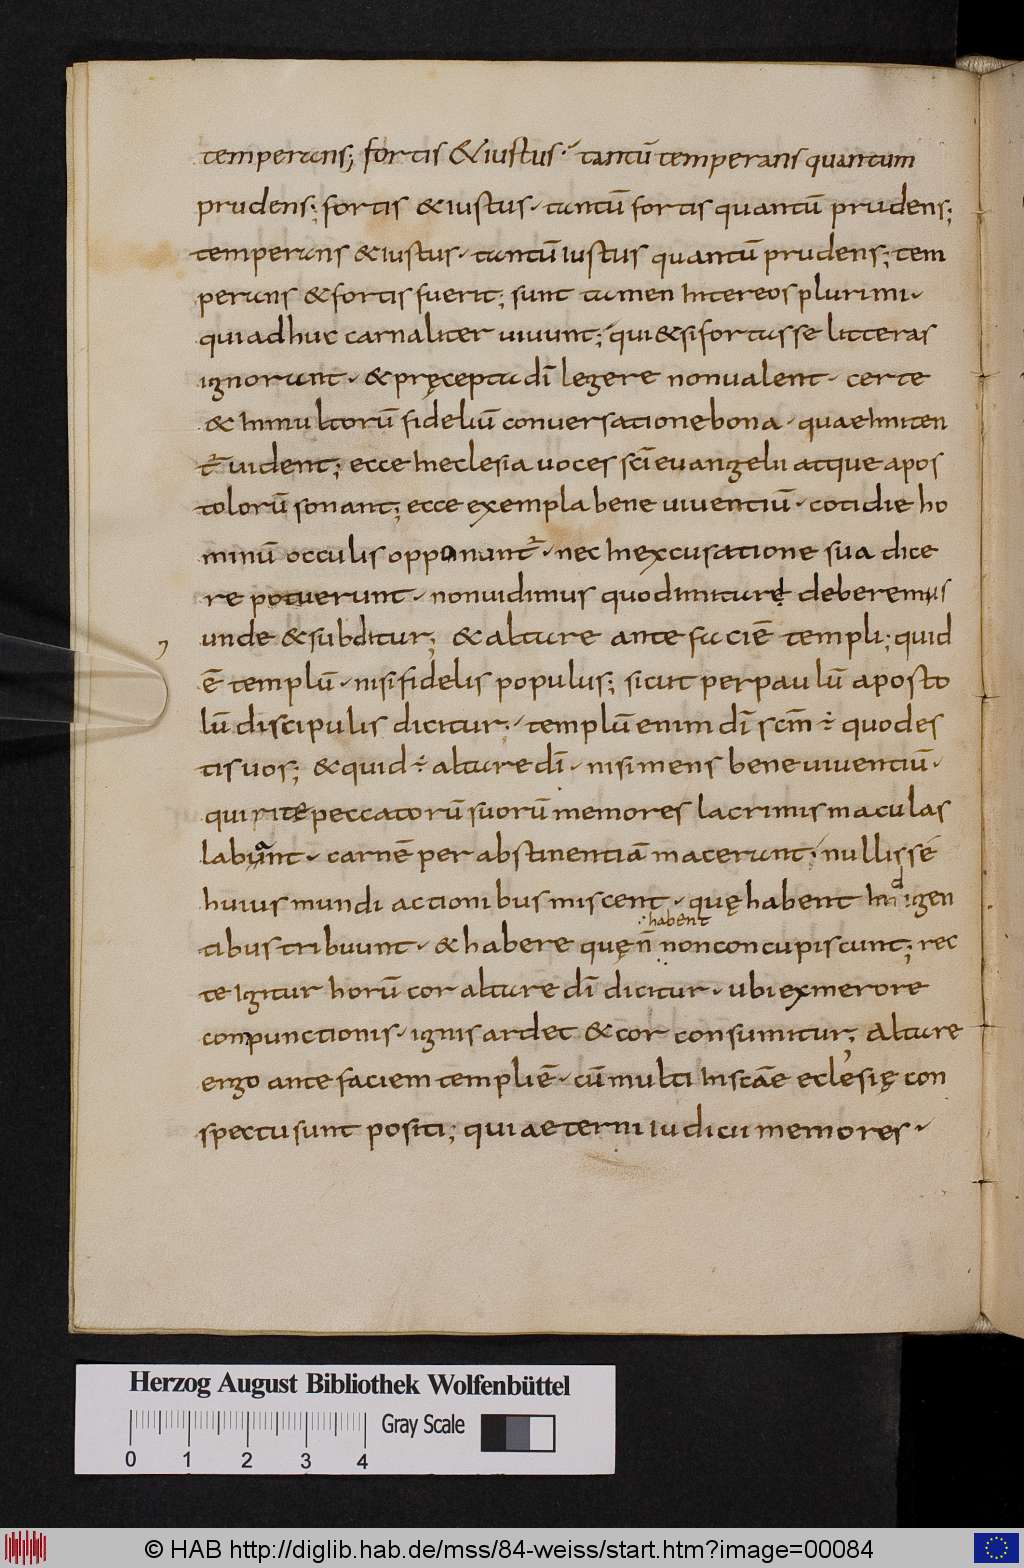 temperans; fortis & iustus· tantū temperans quantum
prudens; fortis & iustus· tantū fortis quantū prudens;
temperans & iustus· tantū iustus quantū prudens; tem
perans & fortis fuerit; sunt tamen inter eos plurimi·
qui adhuc carnaliter uiuunt; qui & si fortasse litteras
ignorant· & pręcepta dī legere non ualent· certe
& in multorū fidelium conuersatione bona· quae imiten
t᷑ uident; ecce in eclesia uoces scī euangelii atque apos
tolorū sonant; ecce exempla bene uiuentiū· cotidie ho
minū occulis opponunt᷑· nec in excusatione sua dice
re potuerunt· non uidimus quod imitare deberemus
unde & subditur; & altare ante faciē templi; quid
ē templū· nisi fidelis populus; sicut per paulū aposto
lū discipulis dicitur;· templū enim dī scm̄ ÷ quod es
tis uos; & quid ÷ altare dī· nisi mens bene uiuentiū·
qui rite peccatorū suorū memores lacrimis maculas
labant· carnē per abstinentiā macerant; nullis se
huius mundi actionibus miscent· quę habent indigen
tibus tribuunt· & habere quę n̄ habent non concupiscunt; rec
te igitur horū cor altare dī dicitur· ubi ex merore
conpunctionis· ignis ardet & cor consumitur; Altare
ergo ante faciem templi ē· cū multi in scāe eclesię con
spectu sunt positi; qui aeterni iudicii memores·
Herzog August Bibliothek Wolfenbüttel
Gray Scale
0 1 2 3 4
© HAB http://diglib.hab.de/mss/84-weiss/start.htm?image=00084